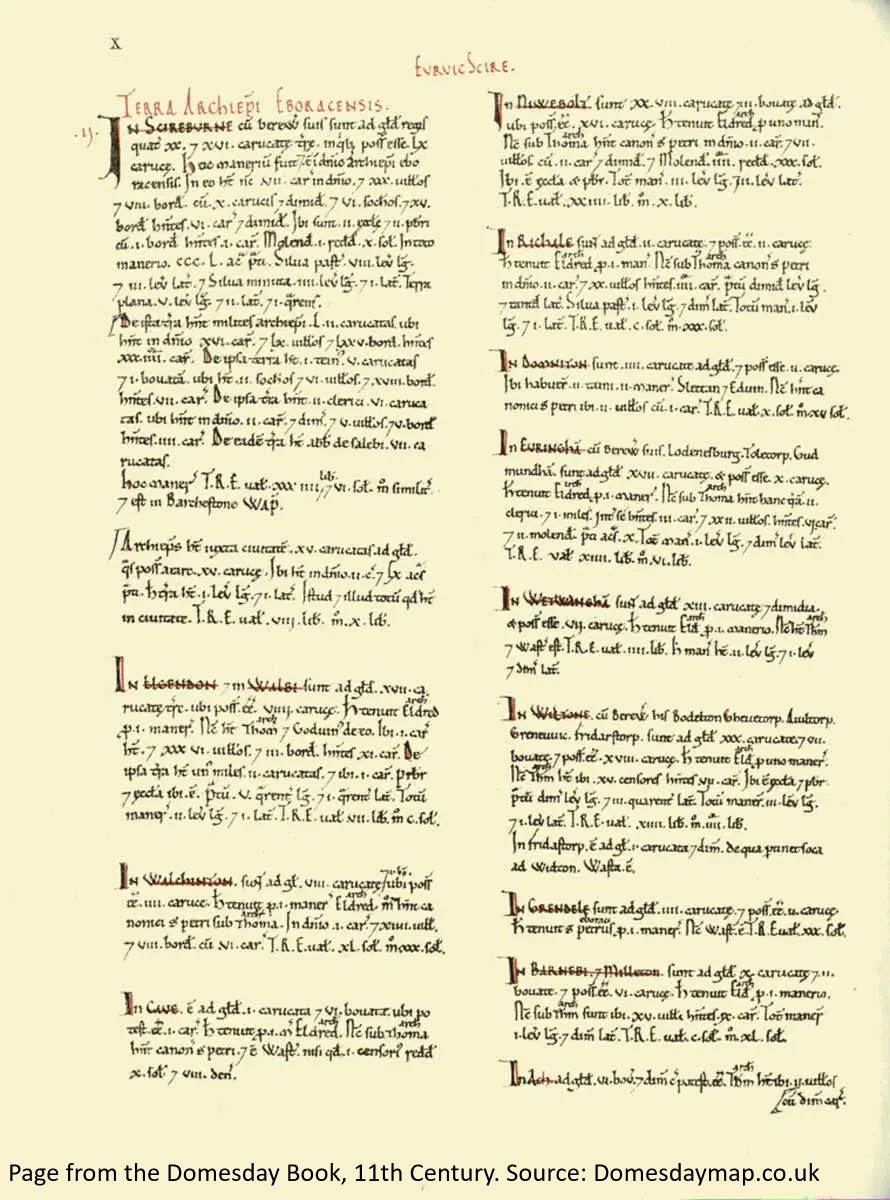 X
EVRVICSCIRE.
TERRA ARCHIEP̃I EBORACENSIS.
.ij.
IN SCIREBURNE cũ berew̃ suis sunt ad gl̃d regis
quat̃ xx. ⁊ xvi. carucatę t̃rę. in q̃b; poss̃ esse. lx
carucę. Hoc maneriũ fuit ⁊ ẽ ĩ dñio archiep̃i ebo
racensis. In eo ht̃ ñc .vii. car̃ in dñio. ⁊ xxx. uill̃os
⁊ viii. bord̃. cũ .x. carucis ⁊ dimid̃. ⁊ vi. sochos ⁊ xv.
bord̃ hñtes. vi. car̃ ⁊ dimid̃. Ibi sunt .ii. ęcclę ⁊ ii. pbr̃i
cũ .i. bord̃ hñtes .i. car̃. Molend̃ .i. redd̃ .x. sol̃. In toto
manerio. ccc. l. ac̃ p̃ti. Silua past̃. viii. leṽ lg̃.
⁊ iii. leṽ lat̃. ⁊ Silua minuta .iiii. leṽ lg̃. ⁊ i. lat̃. Terra
plana. v. leṽ lg̃. ⁊ ii. lat̃. ⁊ i. q̃rent̃.
De ista t̃ra hñt milites archiep̃i. l. ii. carucatas. ubi
hñt in dñio xvi. car̃. ⁊ lxv bord̃. hñtes
xxx. iiii. car̃. De ipsa terra ht̃ .i. tein̾. v. carucatas
⁊ i. bouatã. ubi ht̃ .ii. sochos ⁊ vi. uill̃os. ⁊ xviii. bord̃.
hñtes. vii. car̃. De ipsa t̃ra hñt .ii. clerici .vi. caruca
tas. ubi hñt in dñio .ii. car̃. ⁊ dim̃. ⁊ v. uill̃os. ⁊ v. bord̃
hñtes. iiii. car̃. De eadẽ t̃ra ht̃ abb̃ de salebi .vii. ca
rucatas.
Hoc maner̃ T.R.E. ual̃ .xxx iiii. lib̃. ⁊ vi. sol̃. m̊ similit̃.
⁊ est in Barchestone Wap̃.
Archiep̃s ht̃ iuxta ciuitatẽ .xv. carucatas ad gl̃d.
q̃s poss̃ arare .xv. carucę. Ibi ht̃ in dñio .ii. c̃. ⁊ lx. ac̃s
p̃ti. H t̃ra ht̃ .i. leṽ lg̃. ⁊ i. lat̃. Istud ⁊ illud totũ qd̃ ht̃
in ciuitate. T.R.E. ual̃. viii. lib̃. m̊. x. lib̃.
IN ELGENDON ⁊ in WALBI sunt ad gl̃d. xvii. ca
rucatę t̃rę. ubi poss̃. ẽẽ. viiii. carucę. H̃ tenuit Eldred arch̃
p̱ .i. maner̃. Nc̃ ht̃ Thom̃ arch̃ ⁊ Goduin̾ de eo. Ibi .i. car̃
ht̃. ⁊ xxx vi. uill̃os. ⁊ iii. bord̃. hñtes. xi. car̃. De
ipsa t̃ra ht̃ un̾ miles .ii. carucatas. ⁊ ibi .i. car̃. Pr̃br̃
⁊ ęccła ibi. ẽ. P̃tũ. v. q̃rent̃ lg̃. ⁊ i. q̃rent̃ lat̃. Totũ
maner̃ .ii. leṽ lg̃. ⁊ i. lat̃. T.R.E. ual̃. vii. lib̃. m̊ c. sol̃.
IN WALCHINTON. sunt̃ ad gl̃. viii. carucatę ubi poss̃
ẽẽ. iiii. carucę. H̃ tenuit p̱ .i. maner̃ Eldred arch̃. m̊ hñt ca
nonici s̃ petri sub Thoma arch̃. In dñio .i. car̃. ⁊ xiiii. uill̃.
⁊ viii. bord̃. cũ vi. car̃. T.R.E. ual̃. xl. sol̃. m̊ xxx. sol̃.
In CAVE. ẽ ad gl̃d .i. carucata ⁊ vi. bouatę. ubi po
test. ẽẽ .i. car̃. H̃ tenuit p̱ .i. m̃ Eldred arch̃. Nc̃ sub Thoma arch̃
hñt canon̾ s̃ petri. ⁊ ẽ Wast̃. nisi qd̃ .i. censori̾ redd̃
x. sol̃ ⁊ viii. den̾.
In NIWEBOLT sunt xx. viii. carucatę ⁊ ii. bouatę. ad gl̃d.
ubi poss̃. ẽẽ. xvi. carucę. H̃ tenuit Eldred arch̃ p̱ uno man̾.
Nc̃ sub Thoma arch̃ hñt canon̾ s̃ petri in dñio .ii. car̃. ⁊ vii.
uill̃os cũ .ii. car̃ ⁊ dimid̃. ⁊ Molend̃ .iiii. redd̃. xxx. sol̃.
Ibi. ẽ. ęccła ⁊ pbr̃. Tot̃ man̾. iii. leṽ lg̃. ⁊ ii. leṽ lat̃.
T.R.E. ual̃. xxiiii. lib̃. m̊. x. lib̃.
In RICHALE sunt̃ ad gl̃d .ii. carucatę. ⁊ poss̃. ẽẽ .ii. carucę.
H̃ tenuit Eldred arch̃ p̱ .i. man̾. Nc̃ sub Thoma arch̃ canon̾ s̃ petri
in dñio .ii. car̃. ⁊ xx. uill̃os hñtes. iiii. car̃. P̃tũ dimid̃ leṽ lg̃.
⁊ tantd̃ lat̃. Silua past̃ .i. leṽ lg̃. ⁊ dim̃ lat̃. Totũ man̾ .i. leṽ
lg̃. ⁊ i. lat̃. T.R.E. ual̃. c. sol̃. m̊. xxx. sol̃.
In DOMNITON sunt. iiii. carucatę ad gl̃d. ⁊ poss̃ esse .ii. carucę.
Ibi habuer̃ .ii. taini .ii. maner̃. Slettan ⁊ Eduin. Nc̃ hñt ca
nonici s̃ petri ibi .ii. uill̃os cũ .i. car̃. T.R.E. ual̃. x. sol̃. m̊ xv sol̃.
In EURINGHÃ cũ Berew̃ suis. Lodenesburg. Toletorp. Gud
mundhã. sunt ad gl̃d xvii. carucatę. ⁊ poss̃ esse. x. carucę.
H̃ tenuit Eldred arch̃. p̱ .i. maner̃. Nc̃ sub Thoma arch̃ hñt hanc t̃ra .ii.
clerici. ⁊ i. miles. Int̃ se hñtes. iii. car̃. ⁊ xxii. uill̃os. hñtes. vi. car̃.
⁊ ii. molend̃. p̃ti ac̃s. x. Tot̃ man̾ .i. leṽ lg̃. ⁊ dim̃ leṽ lat̃.
T.R.E. ual̃ xiiii. lib̃. m̊. vi. lib̃.
In WETWANGHÃ sunt̃ ad gl̃d xiii. carucatę ⁊ dimidia.
⁊ poss̃ esse. vii. carucę. H̃ tenuit Eld̃ arch̃. p̱ .i. manerio. Nc̃ ht̃ Thm̃ arch̃
⁊ Wast̃ est. T.R.E. ual̃. iiii. lib̃. H̃ man̾ ht̃ .ii. leṽ lg̃. ⁊ i. leṽ
⁊ dim̃ lat̃.
In WILTONE. cũ Berew̃ his Bodelton Gheuetorp. Auiltorp.
Greneuuic. Fridarstorp. sunt ad gl̃d xxx. carucatę ⁊ vii.
bouatę. ⁊ poss̃. ẽẽ. xviii. carucę. H̃ tenuit Eld̃ arch̃ p̱ uno maner̃.
Nc̃ Thm̃ arch̃ ht̃ ibi. xv. censores hñtes. vii. car̃. Ibi ẽ ęccła ⁊ pbr̃.
P̃tũ dim̃ leṽ lg̃. ⁊ iii. quarent̃ lat̃. Totũ maner̃. iii. leṽ lg̃.
⁊ i. leṽ lat̃. T.R.E. ual̃. xiiii. lib̃. m̊. iiii. lib̃.
In fridastorp. ẽ ad gl̃d .i. carucata ⁊ dim̃. de qua p̱tinet soca
ad Widton. Wasta. ẽ.
In GRENDELE sunt ad gl̃d. iiii. carucatę. ⁊ poss̃. ẽẽ. ii. carucę
H̃ tenuit s̃ petrus. p̱ .i. maner̃. Nc̃ Wast̃. ẽ. T.R.E ual̃. xxx. sol̃.
In BARNEBI. ⁊ Milleton. sunt ad gl̃d x. carucatę ⁊ ii.
bouatę. ⁊ poss̃. ẽẽ. vi. carucę. H̃ tenuit Eld̃ arch̃. p̱ .i. manerio.
Nc̃ sub Thm̃ sunt ibi. xv. uill̃i hñtes. x. car̃. Tot̃ maner̃
i. leṽ lg̃. ⁊ dim̃ lat̃. T.R.E. ual̃. c. sol̃. m̊. xl. sol̃.
In Ach. ad gl̃d. vi. bou̾. ⁊ dim̃ c̃ potest. ẽẽ. Thm̃ arch̃ ht̃ ibi .ii. uill̃os
cũ dim̃ car̃.
Page from the Domesday Book, 11th Century. Source: Domesdaymap.co.uk